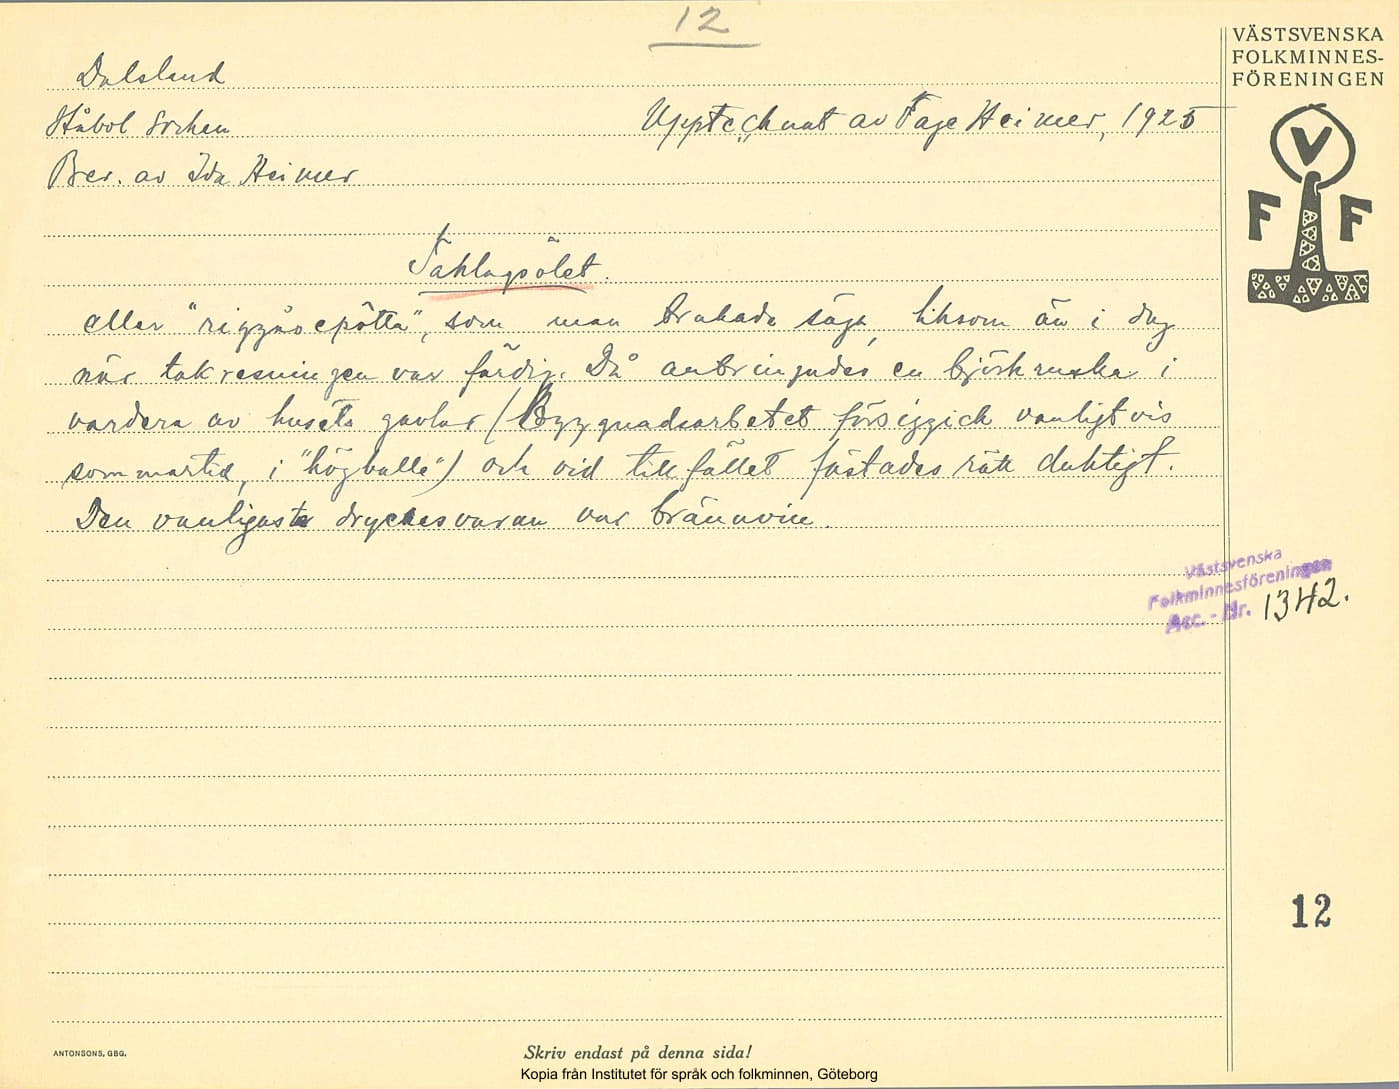 12
VÄSTSVENSKA
FOLKMINNES-
FÖRENINGEN
Dalsland
Ståbol Socken
Upptecknat av Tage Heimer, 1925
Ber. av Ida Heimer
V
F F
Taklagsölet.
eller " ", som man brukade säga, liksom än i dag
när takresningen var färdig. Då anbringades en björkruska i
vardera av husets gavlar (Byggnadsarbetet försiggick vanligtvis
sommartid, i "högballe") och vid tillfället fästades rätt duktigt.
Den vanligaste dryckesvaran var brännvin.
Västsvenska
Folkminnesföreningen
Acc. - Nr. 1342.
12
ANTONSONS, GBG.
Skriv endast på denna sida!
Kopia från Institutet för språk och folkminnen, Göteborg